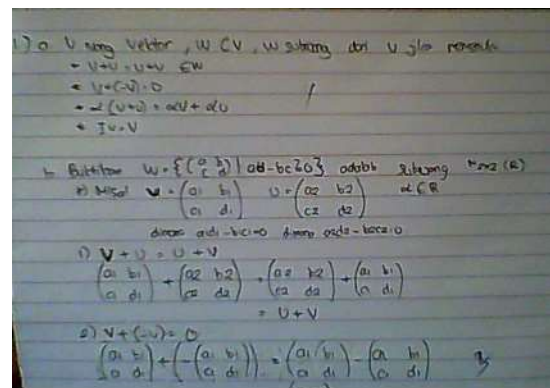 1) a V ruang vektor, W ⊂ V, W subruang dari V jika memenuhi
* V+U = U+V ∈ W
* V+(-V)=0
* α(V+U) = αV + αU
* IV=V
b Buktikan W = {(a b c d) | ad-bc=0} adalah subruang M2x2 (R)
Misal V = (a1 b1 c1 d1) U = (a2 b2 c2 d2) α∈R
dimana a1d1-b1c1=0 dimana a2d2-b2c2=0
1) V + U = U + V
(a1 b1 c1 d1) + (a2 b2 c2 d2) = (a2 b2 c2 d2) + (a1 b1 c1 d1)
= U+V
2) V+(-V)= 0
(a1 b1 c1 d1) + (-(a1 b1 c1 d1)) = (a1 b1 c1 d1) - (a1 b1 c1 d1)